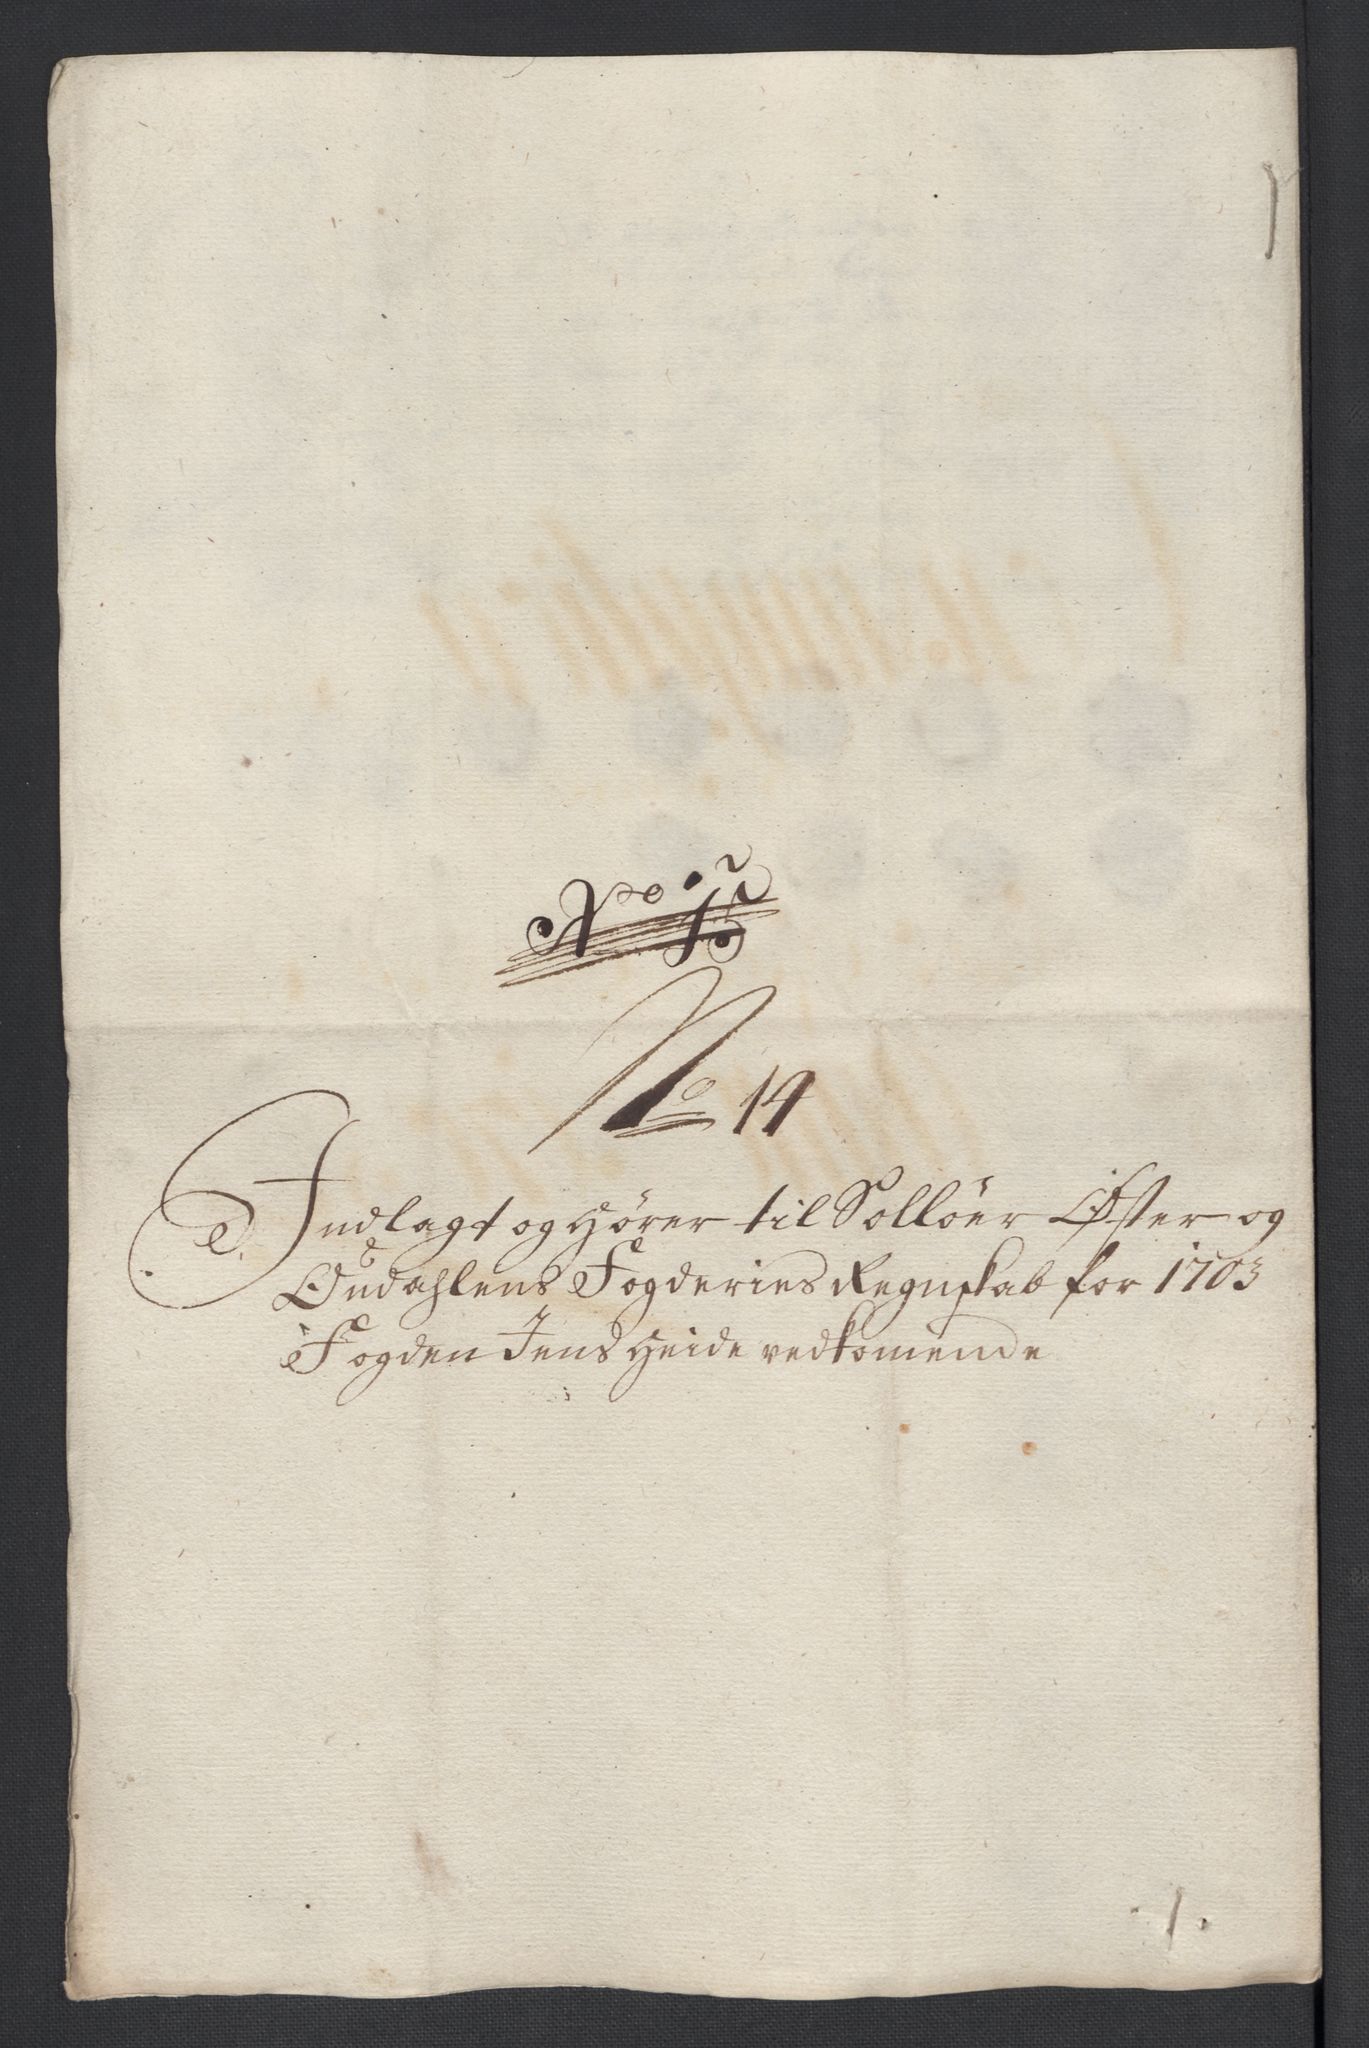 No. 15
No 14
Indlagt og hører til Solløer Øster og
Oudahlens Fogderies Regnskab for 1703
Fogden Jens Heide vedkomende